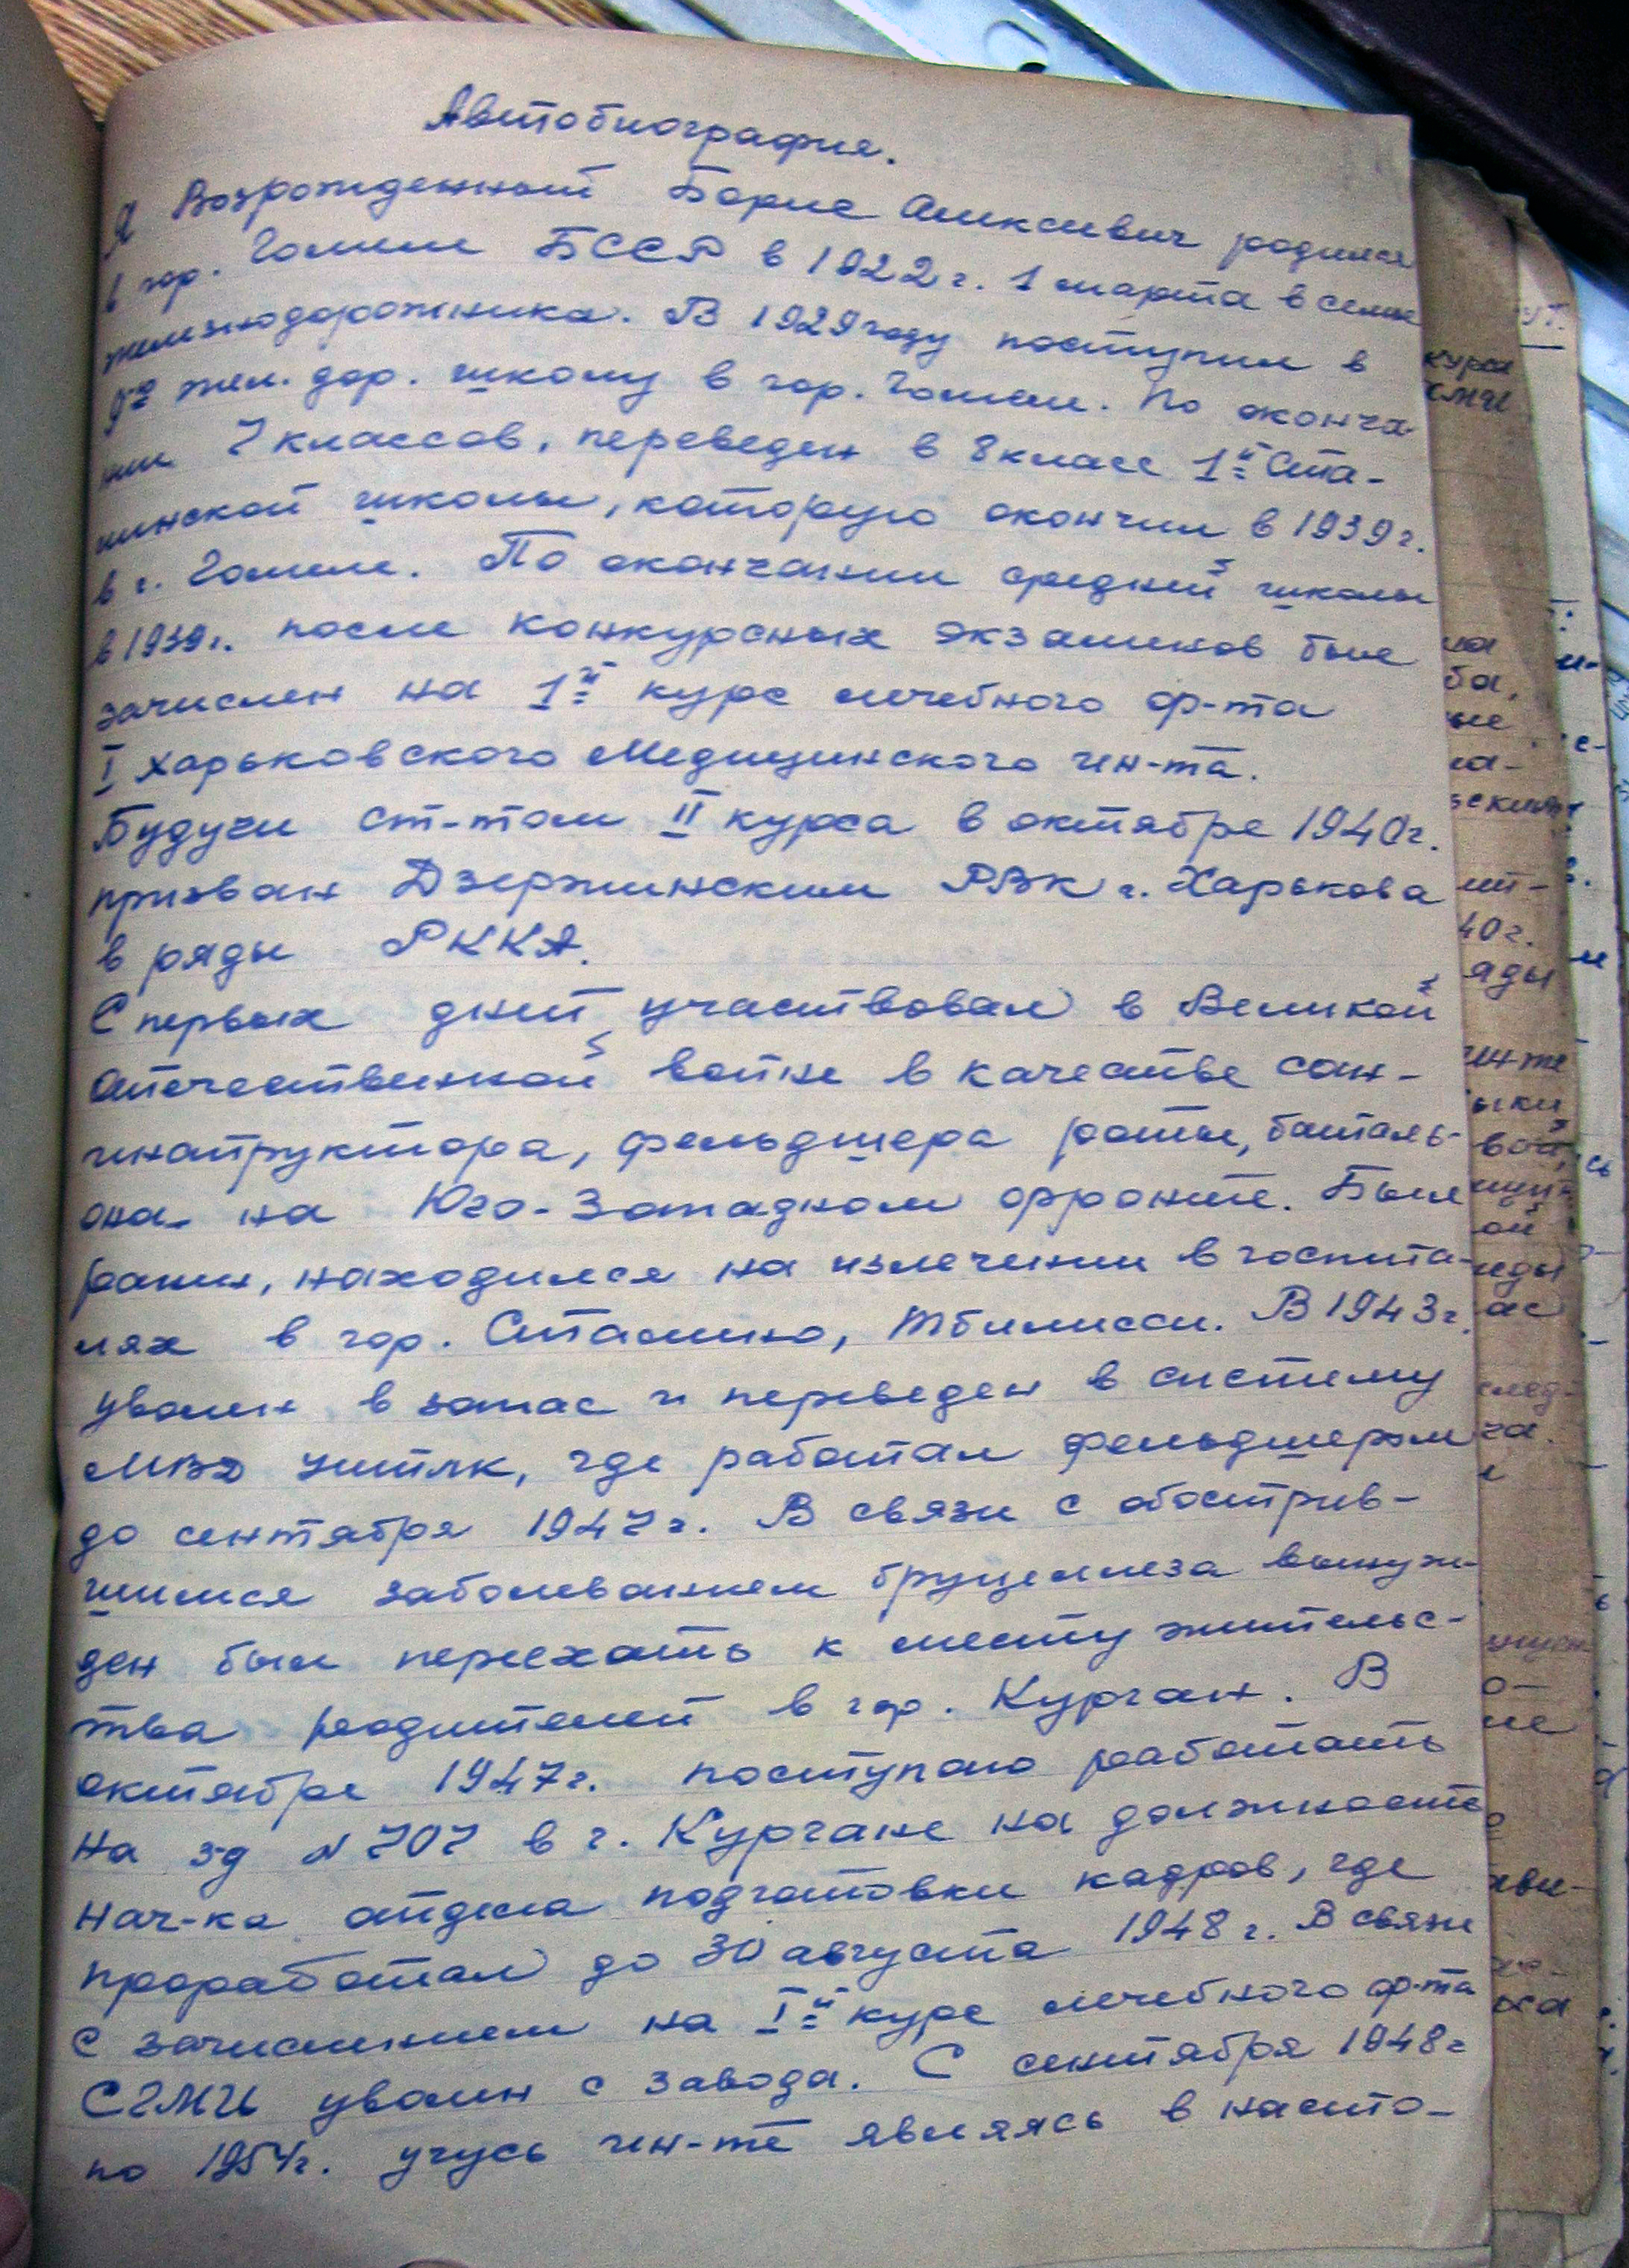 Автобиография.
Я Возрожденный Борис Алексеевич родился
в гор. Гомеле БССР в 1922 г. 1 марта в семье
железнодорожника. В 1929 году поступил в
жел. дор. школу в гор. Гомеле. По оконча
нии 7 классов, переведен в 8 класс 1й Ста-
линской школы, которую окончил в 1939 г.
в г. Гомеле. По окончании средней школы
в 1939 г. после конкурсных экзаменов был
зачислен на 1й курс лечебного ф-та
I Харьковского Медицинского ин-та.
Будучи ст-том II курса в октябре 1940 г.
призван Дзержинским РВК г. Харькова
в ряды РККА.
С первых дней участвовал в Великой
Отечественной войне в качестве сан-
инструктора, фельдшера роты, баталь-
она на Юго-Западном фронте. Был
ранен, находился на излечении в госпита-
лях в гор. Сталино, Тбилисси. В 1943 г.
уволен в запас и переведен в систему
МВД УИТЛК, где работал фельдшером
до сентября 1947 г. В связи с обострив-
шимся заболеванием бруцеллеза вынуж-
ден был переехать к месту жительс-
тва родителей в гор. Курган. В
октябре 1947 г. поступаю работать
на з-д N 707 в г. Кургане на должность
нач-ка отдела подготовки кадров, где
проработал до 30 августа 1948 г. В связи
с зачислением на Iй курс лечебного ф-та
СГМИ уволен с завода. С сентября 1948 г
по 1954 г. учусь ин-те являясь в насто-